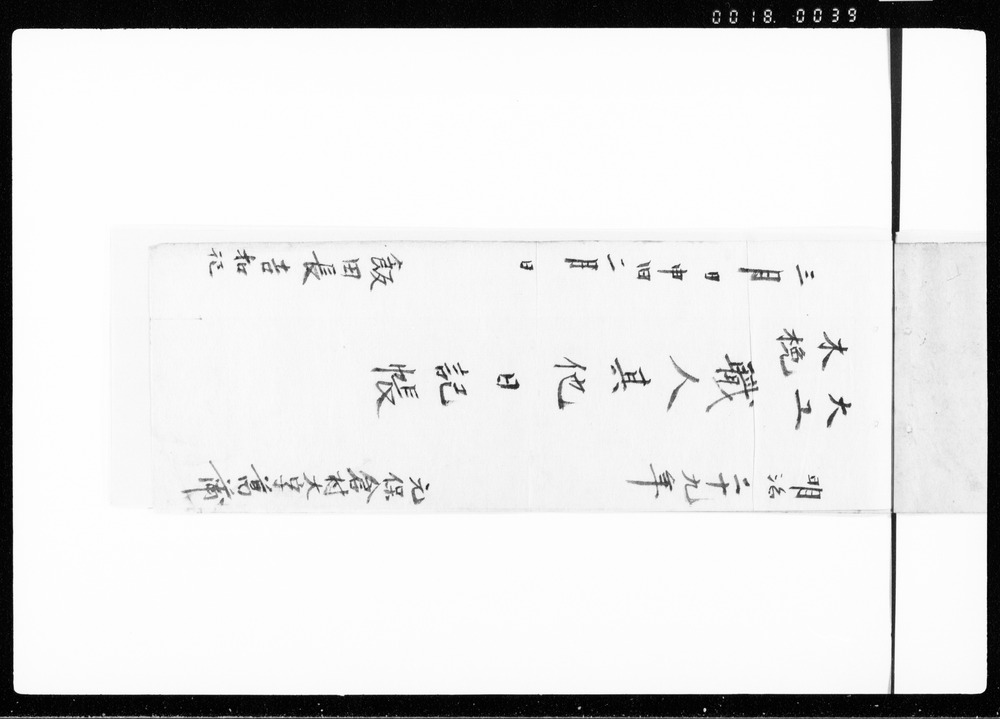 明治二十九年
元保倉村大字高
大工
木挽
職人其他日記帳
三月日申旧二月日
飯田長吉扣記
0018.0039